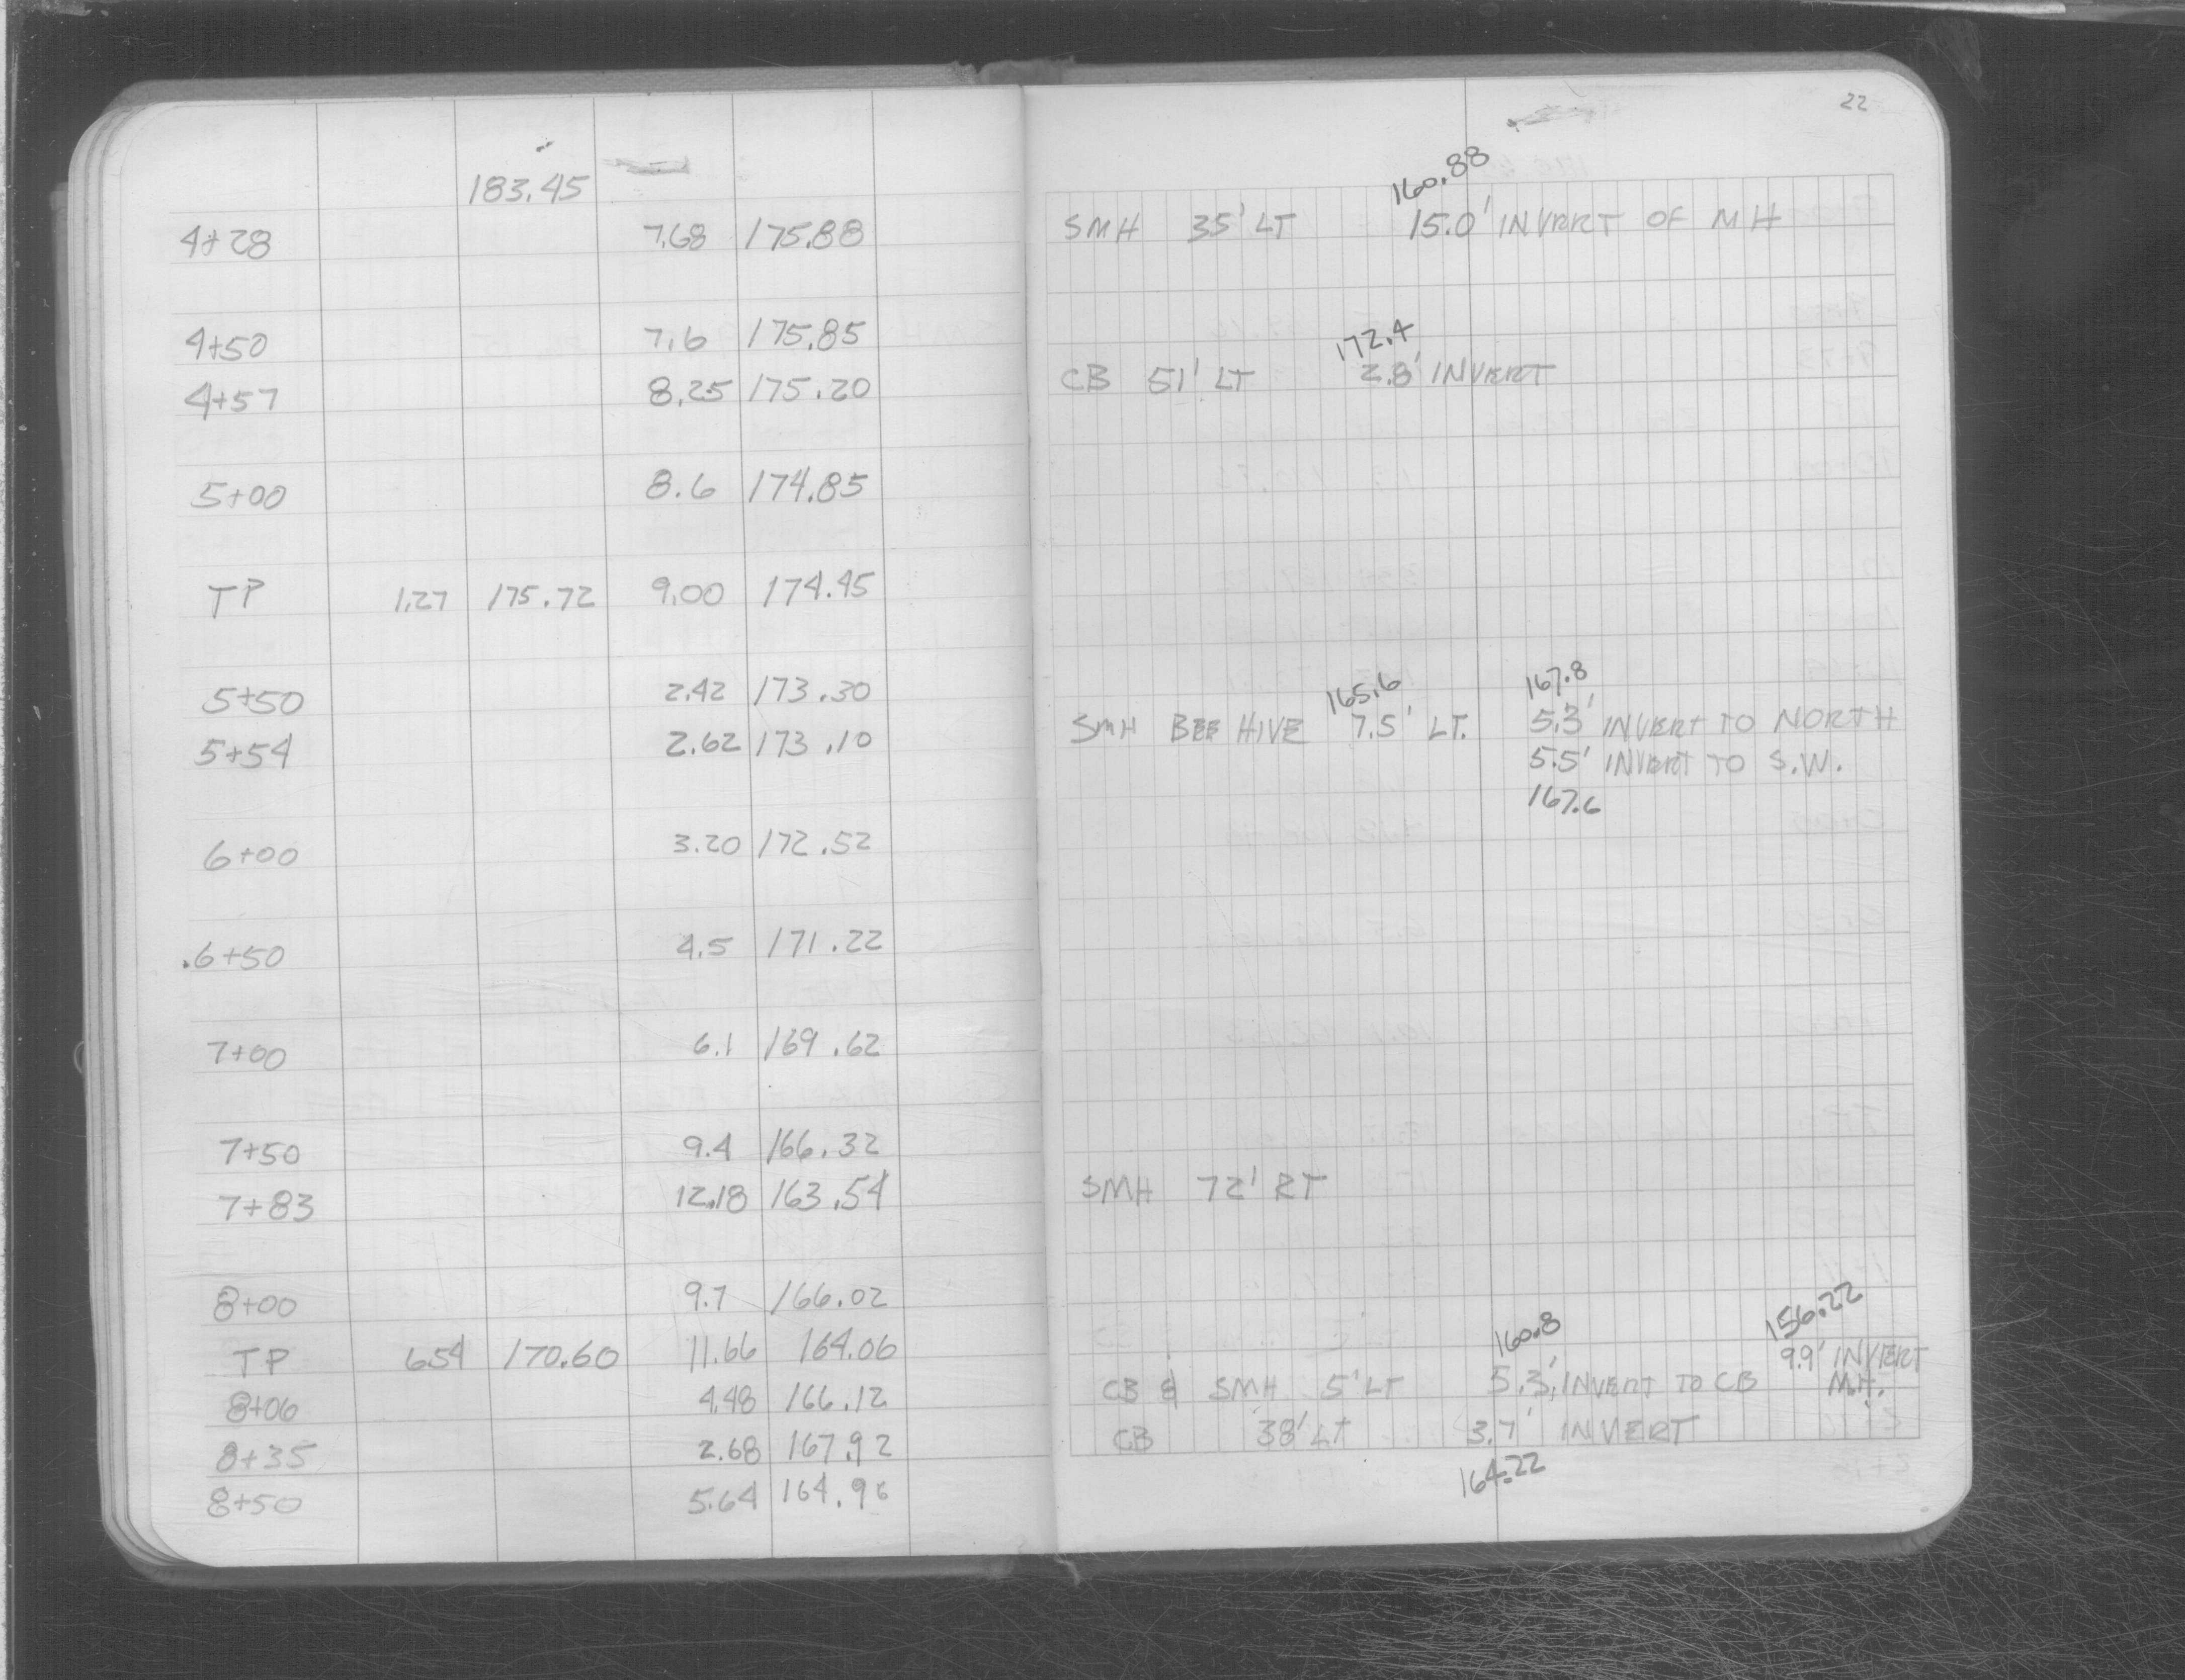 22
183.45
160.88
4+28 7.68 175.88 SMH 35' LT 15.0' INVERT OF MH
4+50 7.6 175.85
172.4
4+57 8.25 175.20 CB 51' LT 2.8' INVERT
5+00 8.6 174.85
TP 1.27 175.72 9.00 174.45
5+50 2.42 173.30
165.6 167.8
5+54 2.62 173.10 SMH BEE HIVE 7.5' LT. 5.3' INVERT TO NORTH
5.5' INVERT TO S.W.
167.6
6+00 3.20 172.52
6+50 4.5 171.22
7+00 6.1 169.62
7+50 9.4 166.32
7+83 12.18 163.54 SMH 72' RT
8+00 9.7 166.02
160.8 156.22
TP 654 170.60 11.66 164.06 9.9' INVERT
8+06 4.48 166.12 CB & SMH 5' LT 5.3' INVERT TO CB M.H.
8+35 2.68 167.92 CB 38' LT 3.7' INVERT
164.22
8+50 5.64 164.96